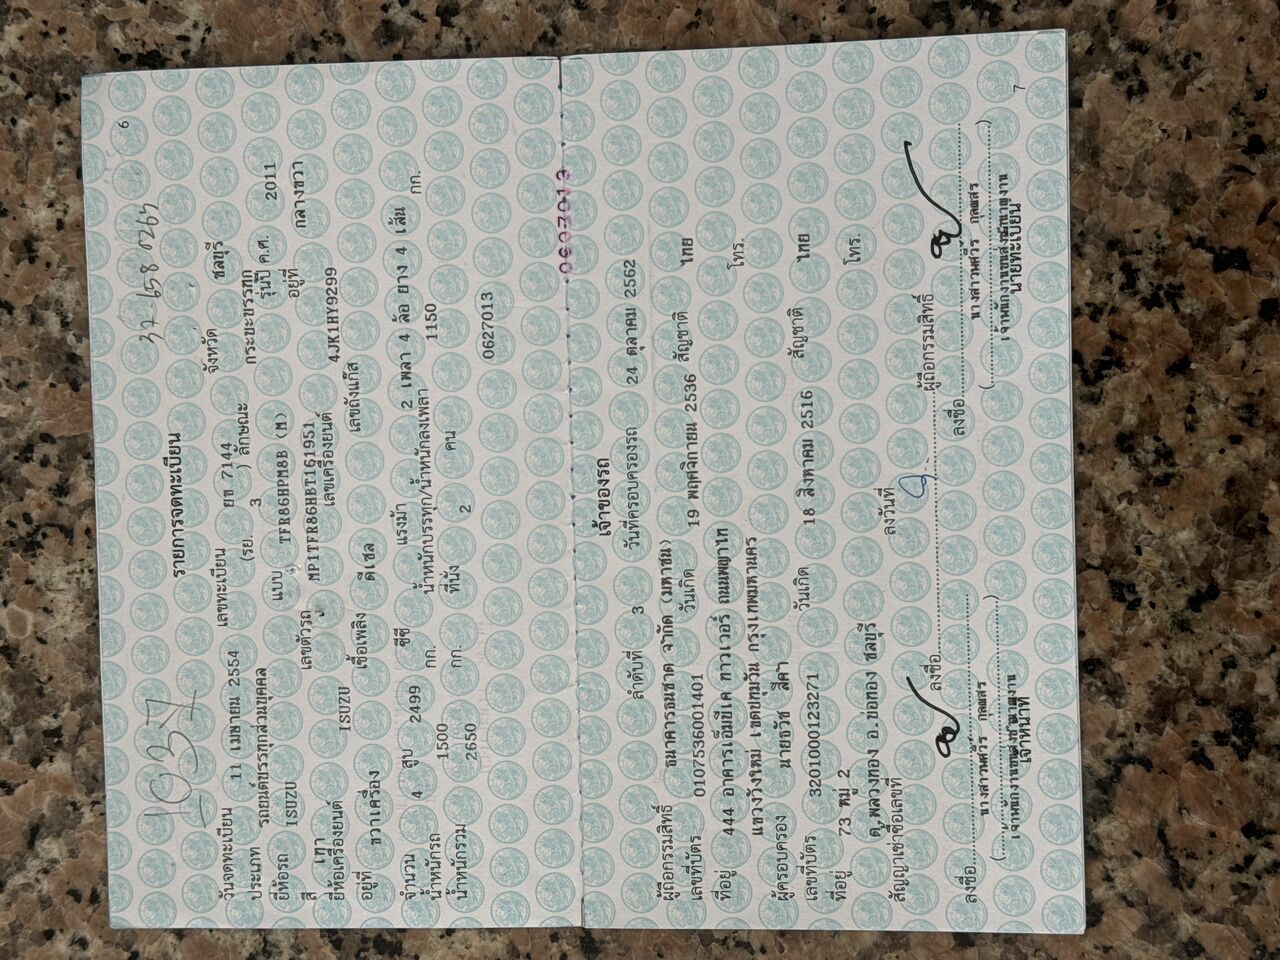 6
1037
32 658 0265
รายการจดทะเบียน
วันจดทะเบียน 11 เมษายน 2554 เลขทะเบียน ยข 7144 จังหวัด ชลบุรี
ประเภท รถยนต์บรรทุกส่วนบุคคล (รย. 3 ) ลักษณะ กระบะบรรทุก
ยี่ห้อรถ ISUZU แบบ TFR86HPM8B (M) รุ่นปี ค.ศ. 2011
สี เทา เลขตัวรถ MP1TFR86HBT161951 อยู่ที่ กลางขวา
ยี่ห้อเครื่องยนต์ ISUZU เลขเครื่องยนต์ 4JK1HY9299
อยู่ที่ ขวาเครื่อง เชื้อเพลิง ดีเซล เลขถังแก๊ส
จำนวน 4 สูบ 2499 ซีซี แรงม้า 2 เพลา 4 ล้อ ยาง 4 เส้น
น้ำหนักรถ 1500 กก. น้ำหนักบรรทุก/น้ำหนักลงเพลา 1150 กก.
น้ำหนักรวม 2650 กก. ที่นั่ง 2 คน
0627013
0607013
เจ้าของรถ
ลำดับที่ 3 วันที่ครอบครองรถ 24 ตุลาคม 2562
ผู้ถือกรรมสิทธิ์ ธนาคารธนชาต จำกัด (มหาชน)
เลขที่บัตร 0107536001401 วันเกิด 19 พฤศจิกายน 2536 สัญชาติ ไทย
ที่อยู่ 444 อาคารเอ็มบีเค ทาวเวอร์ ถนนพญาไท โทร.
แขวงวังใหม่ เขตปทุมวัน กรุงเทพมหานคร
ผู้ครอบครอง นายธวัช สีดา
เลขที่บัตร 3201000123271 วันเกิด 18 สิงหาคม 2516 สัญชาติ ไทย
ที่อยู่ 73 หมู่ 2 โทร.
ต.พลวงทอง อ.บ่อทอง ชลบุรี
สัญญาเช่าซื้อเลขที่ ลงวันที่
ลงชื่อ ผู้ถือกรรมสิทธิ์
ลงชื่อ ลงชื่อ
เจ้าหน้าที่ นายทะเบียน
7